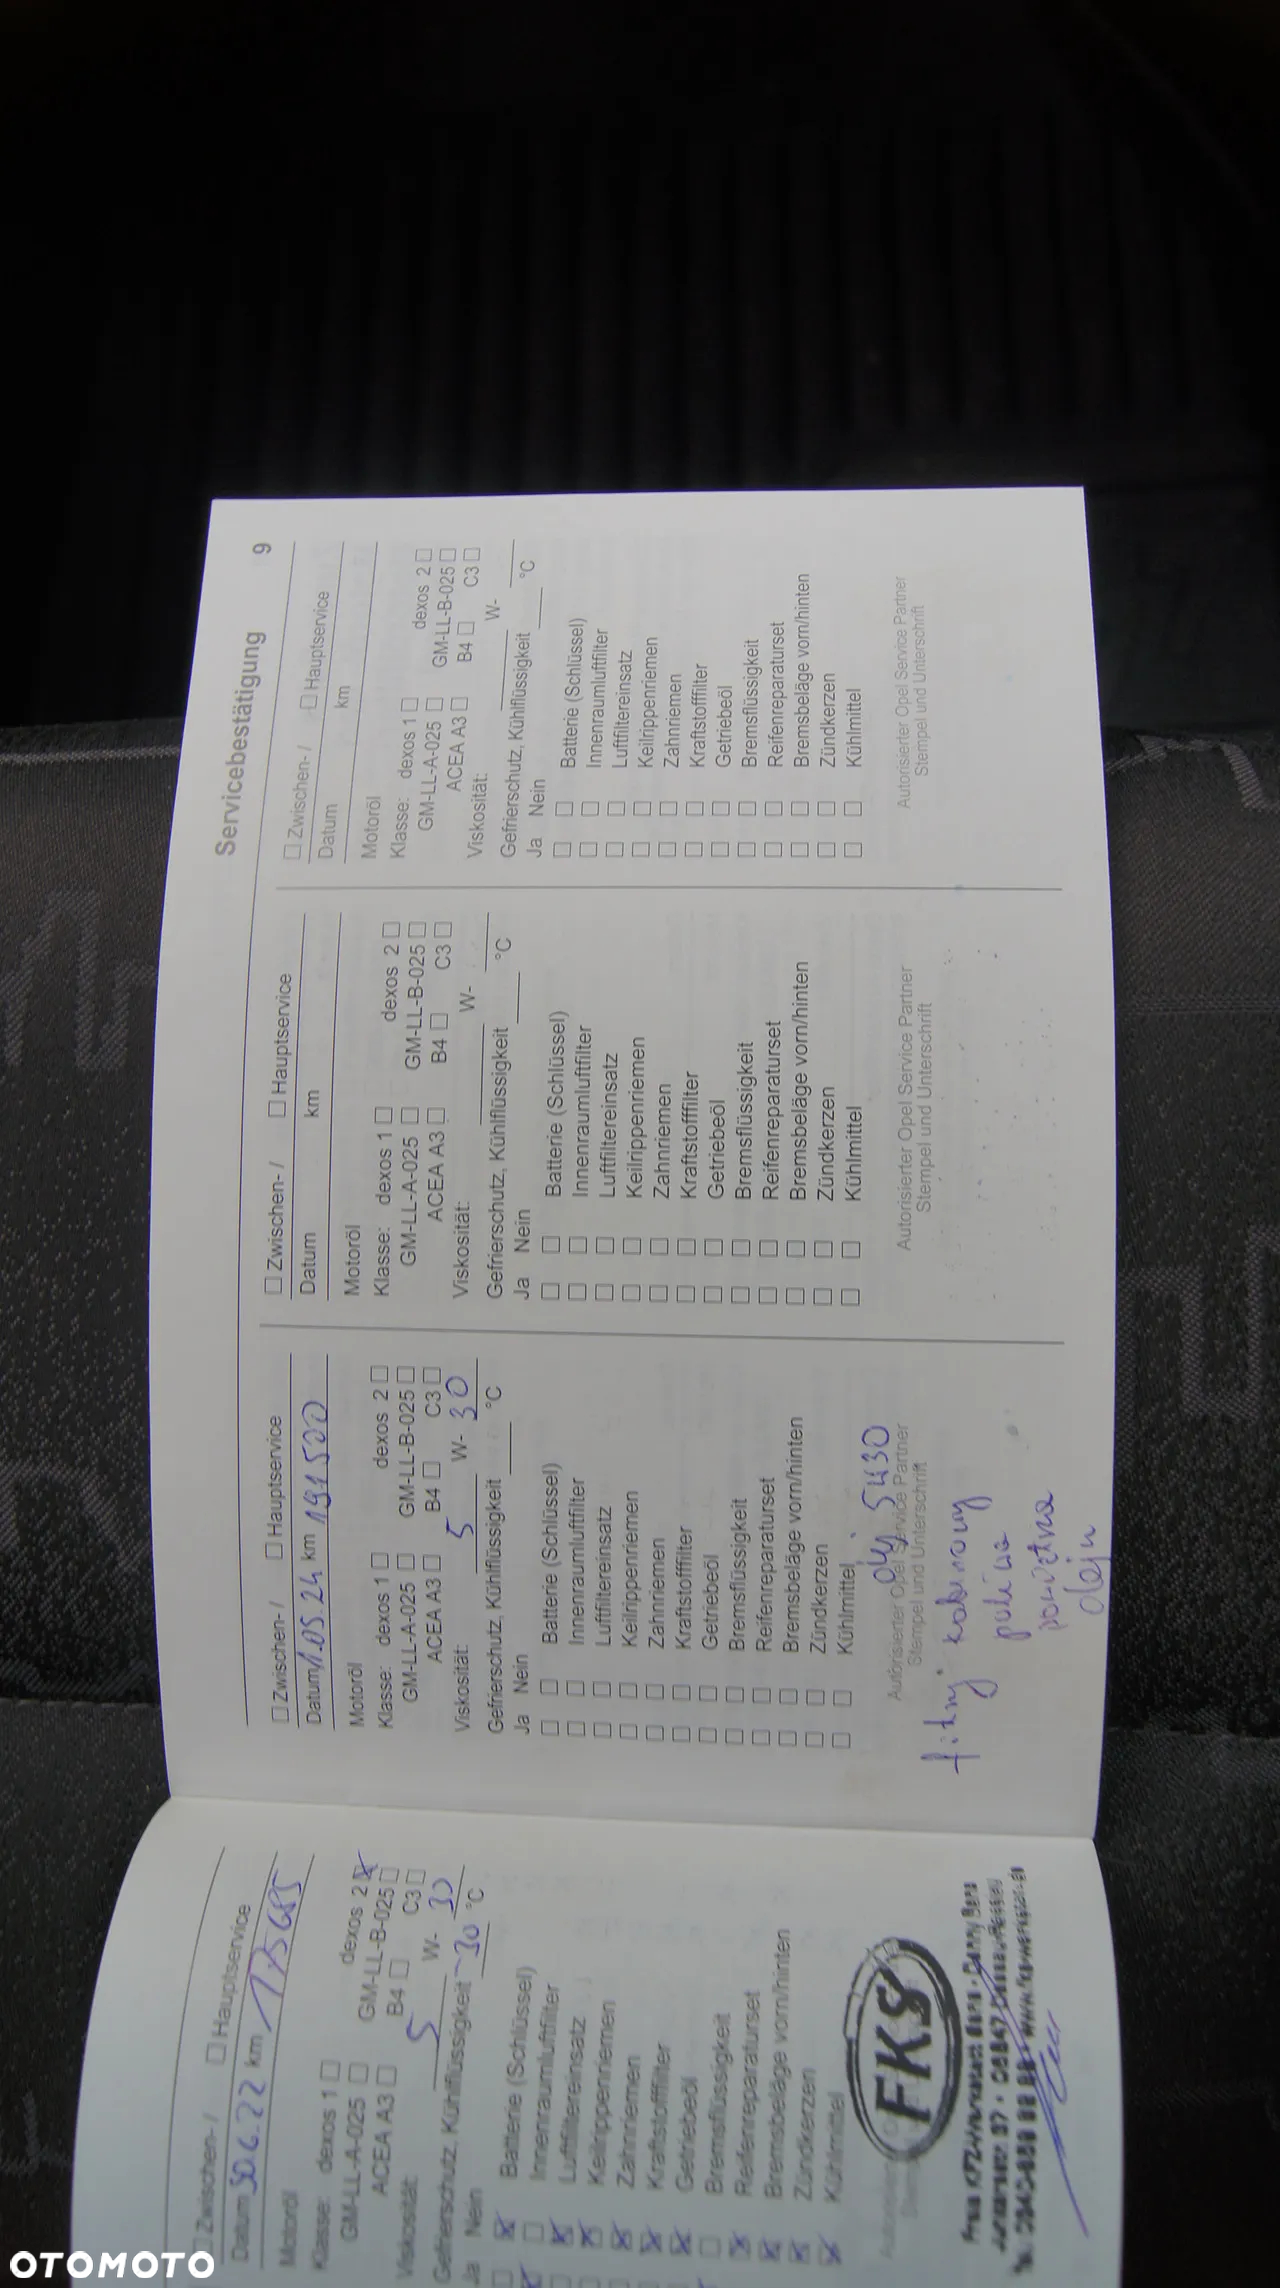 Servicebestätigung 9
Zwischen- / Hauptservice
Datum 30.6.22 km 175685
Motoröl
Klasse: dexos 1 dexos 2
GM-LL-A-025 GM-LL-B-025
ACEA A3 B4 C3
Viskosität: 5 W- 30
Gefrierschutz, Kühlflüssigkeit -30 °C
Ja Nein
Batterie (Schlüssel)
Innenraumluftfilter
Luftfiltereinsatz
Keilrippenriemen
Zahnriemen
Kraftstofffilter
Getriebeöl
Bremsflüssigkeit
Reifenreparaturset
Bremsbeläge vorn/hinten
Zündkerzen
Kühlmittel
FKS
Zwischen- / Hauptservice
Datum 1.05.24 km 191500
Motoröl
Klasse: dexos 1 dexos 2
GM-LL-A-025 GM-LL-B-025
ACEA A3 B4 C3
Viskosität: 5 W- 30
Gefrierschutz, Kühlflüssigkeit °C
Ja Nein
Batterie (Schlüssel)
Innenraumluftfilter
Luftfiltereinsatz
Keilrippenriemen
Zahnriemen
Kraftstofffilter
Getriebeöl
Bremsflüssigkeit
Reifenreparaturset
Bremsbeläge vorn/hinten
Zündkerzen
Kühlmittel
olej 5W30
Autorisierter Opel Service Partner
Stempel und Unterschrift
filtry kabinowy
paliwa
powietrza
oleju
Zwischen- / Hauptservice
Datum km
Motoröl
Klasse: dexos 1 dexos 2
GM-LL-A-025 GM-LL-B-025
ACEA A3 B4 C3
Viskosität: W-
Gefrierschutz, Kühlflüssigkeit °C
Ja Nein
Batterie (Schlüssel)
Innenraumluftfilter
Luftfiltereinsatz
Keilrippenriemen
Zahnriemen
Kraftstofffilter
Getriebeöl
Bremsflüssigkeit
Reifenreparaturset
Bremsbeläge vorn/hinten
Zündkerzen
Kühlmittel
Autorisierter Opel Service Partner
Stempel und Unterschrift
Zwischen- / Hauptservice
Datum km
Motoröl
Klasse: dexos 1 dexos 2
GM-LL-A-025 GM-LL-B-025
ACEA A3 B4 C3
Viskosität: W-
Gefrierschutz, Kühlflüssigkeit °C
Ja Nein
Batterie (Schlüssel)
Innenraumluftfilter
Luftfiltereinsatz
Keilrippenriemen
Zahnriemen
Kraftstofffilter
Getriebeöl
Bremsflüssigkeit
Reifenreparaturset
Bremsbeläge vorn/hinten
Zündkerzen
Kühlmittel
Autorisierter Opel Service Partner
Stempel und Unterschrift
OTOMOTO